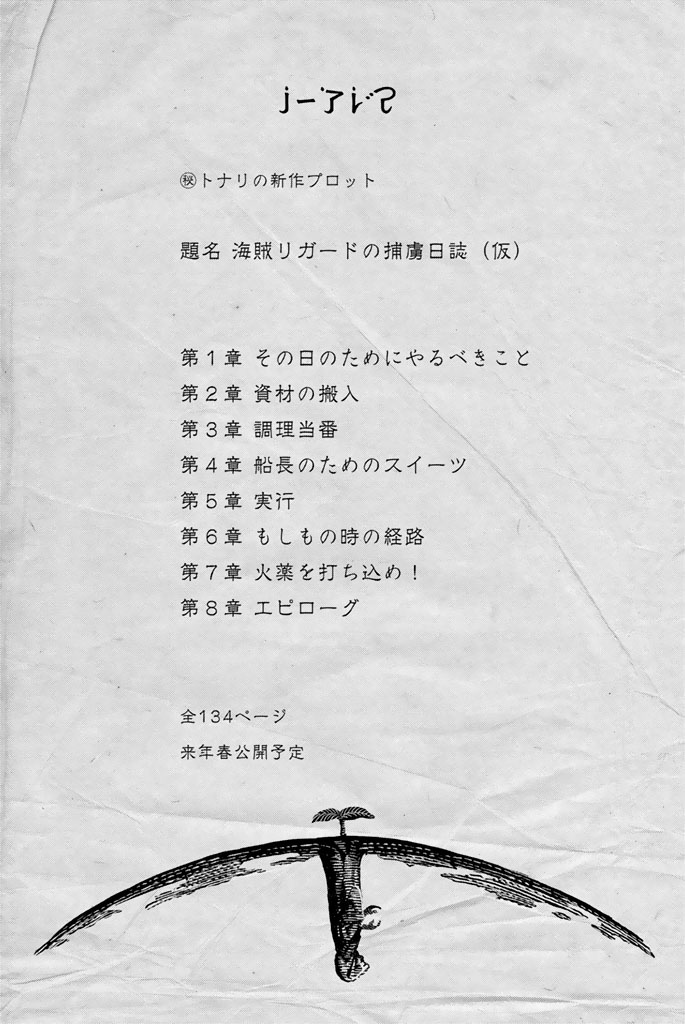 ㊙トナリの新作プロット
題名 海賊リガードの捕虜日誌（仮）
第１章 その日のためにやるべきこと
第２章 資材の搬入
第３章 調理当番
第４章 船長のためのスイーツ
第５章 実行
第６章 もしもの時の経路
第７章 火薬を打ち込め！
第８章 エピローグ
全134ページ
来年春公開予定